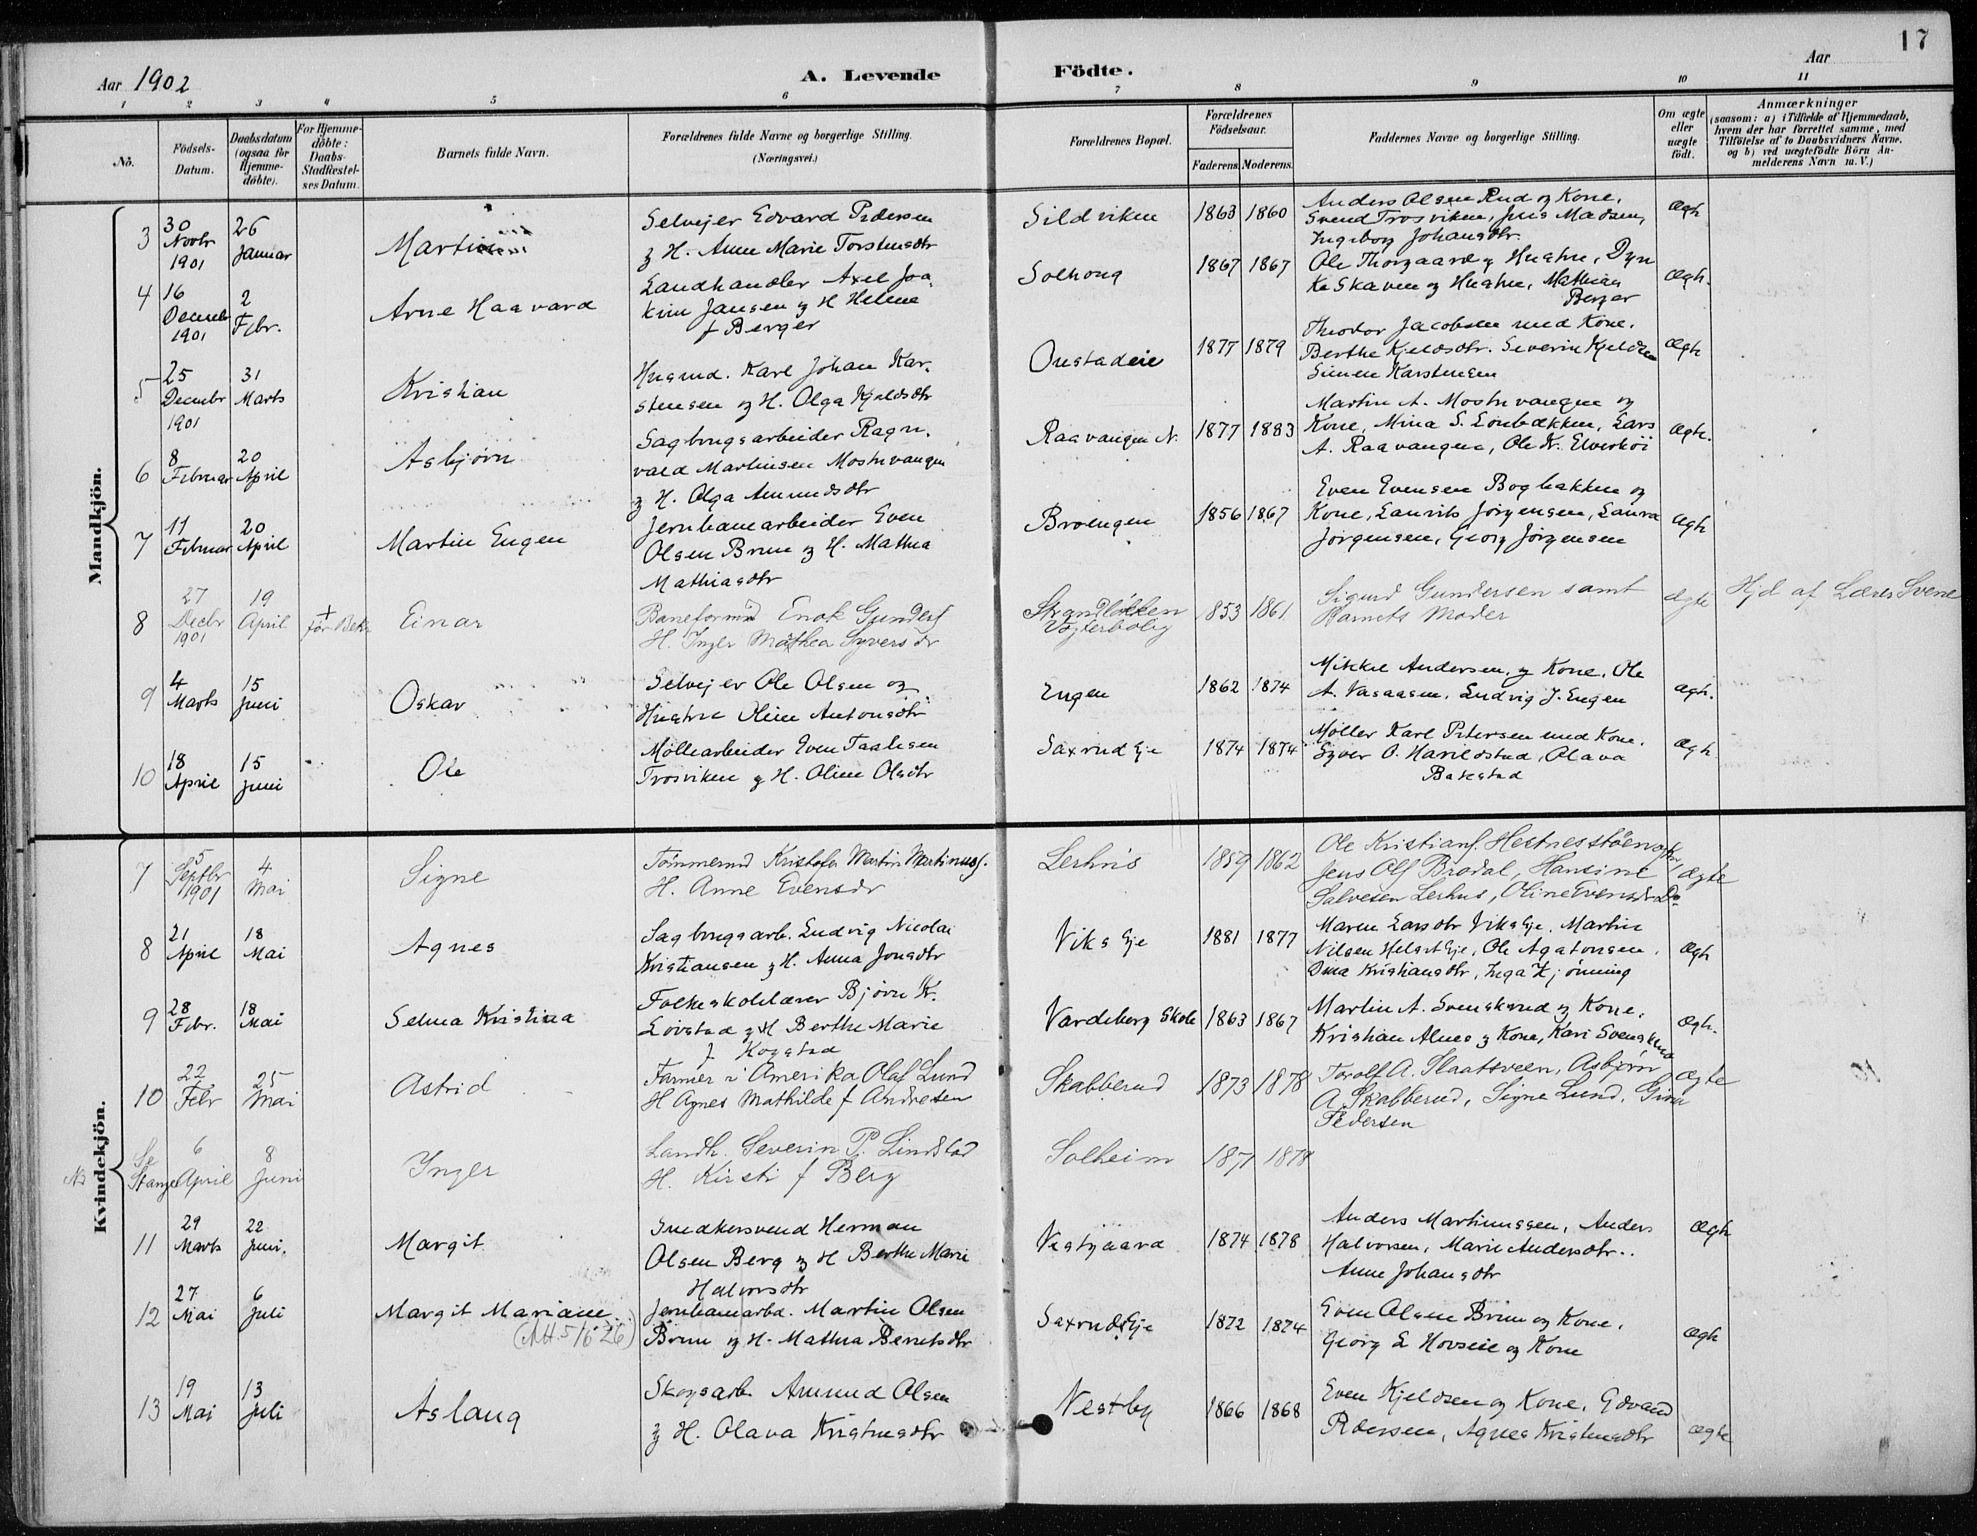 17
Aar 1902 A. Levende Födte. Aar
1 2 3 4 5 6 7 8 9 10 11
No. Födsels-Datum. Daabsdatum (ogsaa for Hjemme-döbte). For Hjemme-döbte: Daabs-Stadfæstel-ses Datum. Barnets fulde Navn. Forældrenes fulde Navne og borgerlige Stilling. (Næringsvei.) Forældrenes Bopæl. Forældrenes Födselsaar. Faderens. Moderens. Faddernes Navne og borgerlige Stilling. Om ægte eller uægte födt. Anmærkninger (saasom: a) i Tilfælde af Hjemmedaab, hvem der har forrettet samme, med Tilföielse af to Daabsvidners Navne, og b) ved uægtefödte Börn An-melderens Navn m. V.)
Mandkjön.
3 30 Novbr 1901 26 Januar Martin
Selveier Edvard Pedersen
g H. Anne Marie Torstensdtr
Sildviken 1863 1860
Anders Olsen Rud og Kone,
Svend Trosviken, Jens Madsen,
Ingeborg Johansdtr.
Ægte
4 16 Decembr 1901 2 Febr. Arne Haavard
Landhandler Axel Joa-
kim Jansen g H Helene
f Berger
Solhoug 1867 1867
Ole Thorgaard g Hustru, Dyre
Ka Skaven og Hustru, Mathias
Berger
Ægte.
5 25 Decembr 1901 31 Marts Kristian
Husmd. Karl Johan Kar-
stensen og H. Olga Kjeldsdtr
Onstadeie 1877 1879
Theodor Jacobsen med Kone.
Berthe Kjeldsdtr. Severin Kjeldsen
Simen Karstensen
Ægte
6 8 Februar 20 April Asbjørn
Sagbrugsarbeider Ragn-
vald Martinsen Mostuvangen
g H. Olga Amundsdtr
Raavangen N. 1877 1883
Martin A. Mostuvangen og
Kone, Mina S. Lonbækken, Lars
A. Raavangen, Ole K. Elverhöi
Ægte.
7 11 Februar 20 April Martin Eugen
Jernbanearbeider Even
Olsen Brun g H. Mathea
Mathiasdtr
Broengen 1856 1867
Even Evensen Bogbakken og
Kone, Laurits Jørgensen, Laura
Jørgensen, Georg Jørgensen
Ægte
8 27 Decbr 1901 19 April + før Bekr Einar
Baneformd Enok Gunders.
H. Inger Mathea Syversdr
Strandløkken
Vogterbolig
1853 1861
Sigurd Gundersen samt
Barnets Moder
ægte Hjd af Lærer Svene
9 4 Marts 15 Juni Oskar
Selvejer Ole Olsen og
Hustru Oline Antonsdtr
Engen 1862 1874
Mikkel Andersen g Kone. Ole
A. Vasaasen, Ludvig J. Engen
Ægte.
10 18 April 15 Juni Ole
Møllearbeider Even Taalesen
Trosviken g H. Oline Olsdtr
Saxrud Eje 1874 1874
Møller Karl Petersen med Kone.
Syver O. Harildstad, Olava
Bakstad
Ægte
Kvindekjön.
7 5 Septbr 1901 4 Mai Signe
Tømmermd Kristofer Martin Martinus.
H. Anne Evensdr
Lerhus 1859 1862
Ole Kristians. Hestnesstöen
Jens Olf Brodal, Hansine
Salvesen Lerhus, Oline Evensdr Do
ægte
8 21 April 18 Mai Agnes
Sagbrugsarb. Ludvig Nicolai
Kristiansen g H. Anna Jonsdtr
Viks Eje 1881 1877
Maren Larsdtr Viks Eje, Martin
Nilsen Helset Eje, Ole Agatonsen,
Oma Kristiansdtr, Inga Hjönning
Ægte
9 28 Febr. 18 Mai Selma Kristina
Folkeskolelærer Bjørn K.
Lövstad g H Berthe Marie
f Kogstad
Vardeberg Skole 1863 1867
Martin A. Svenskerud g Kone,
Kristian Alnes g Kone, Kari Svenskerud
Ægte.
10 22 Febr 25 Mai Astrid
Farmer i Amerika Olaf Lund
H Agnes Mathilde f Andresen
Skabberud 1873 1878
Torolf A. Slaatsveen, Asbjørn
A. Skabberud, Signe Lund, Gina
Pedersen
Ægte
Se Stange 6 April 8 Juni Inger
Landh. Severin P. Lindstad
H. Kirsti f Berg
Solheim 1871 1878
11 29 Marts 22 Juni. Margit
Snedkersvend Herman
Olsen Berg g H Berthe Marie
Halvorsdtr
Vestgaard 1874 1878
Anders Martinussen, Anders
Halvorsen, Marie Andersdtr..
Anne Johansdtr
Ægte
12 27 Mai 6 Juli Margit Mariane
(Att. 5/6 26)
Jernbanearbd. Martin Olsen
Brun g H. Mathea Berntsdtr
Saxrud Eje 1872 1874
Even Olsen Brun og Kone,
Georg L Hovseie og Kone
Ægte
13 19 Mai 13 Juli Aslaug
Skogsarb. Amund Olsen
g H. Olava Kristensdtr
Vestby 1866 1868
Even Kjeldsen og Kone, Edvard
Pedersen, Agnes Kristensdtr
ægte